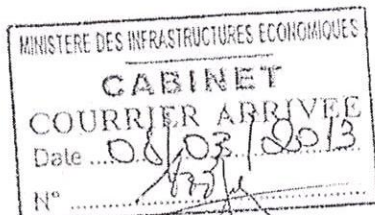 MINISTERE DES INFRASTRUCTURES ECONOMIQUES
CABINET
COURRIER ARRIVEE
Date ... 06/03/2013
N° ...